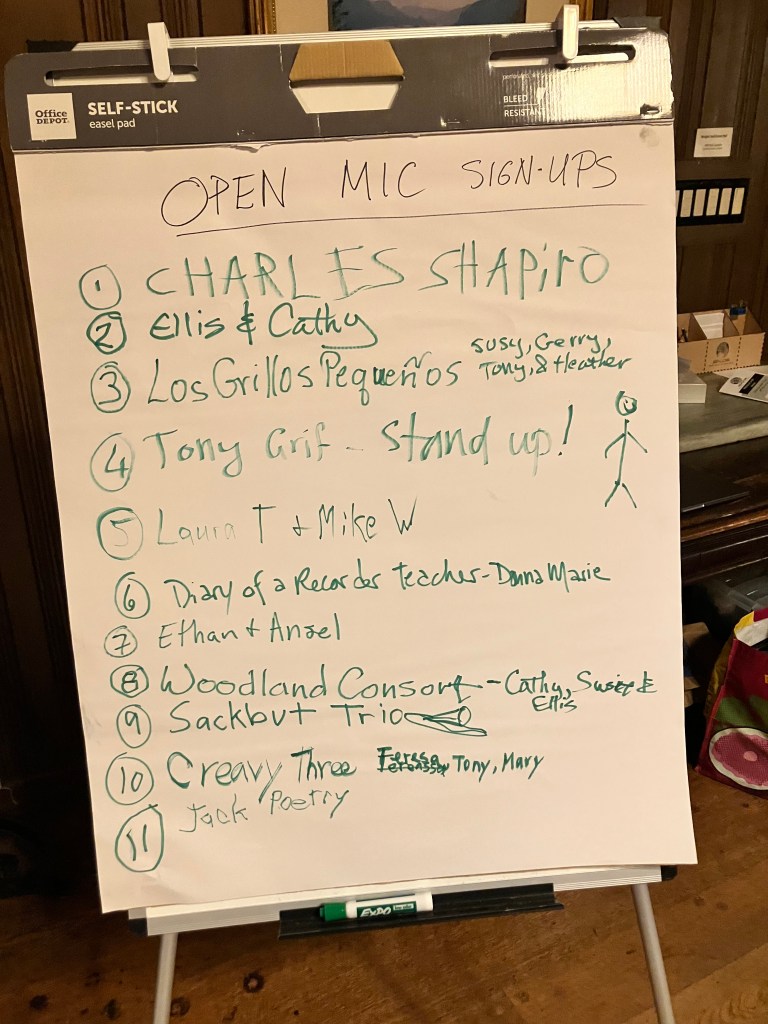 Office
DEPOT
SELF-STICK
easel pad
BLEED
OPEN MIC SIGN-UPS
1 CHARLES SHAPIRO
2 Ellis & Cathy
3 Los Grillos Pequeños Susy, Gerry,
Tony, & Heather
4 Tony Grif - Stand up!
5 Laura T + Mike W
6 Diary of a Recorder Teacher - Donna Marie
7 Ethan + Ansel
8 Woodland Consort - Cathy, &
Ellis
9 Sackbut Trio
10 Creavy Three Tony, Mary
11 Jack Poetry
EXPO